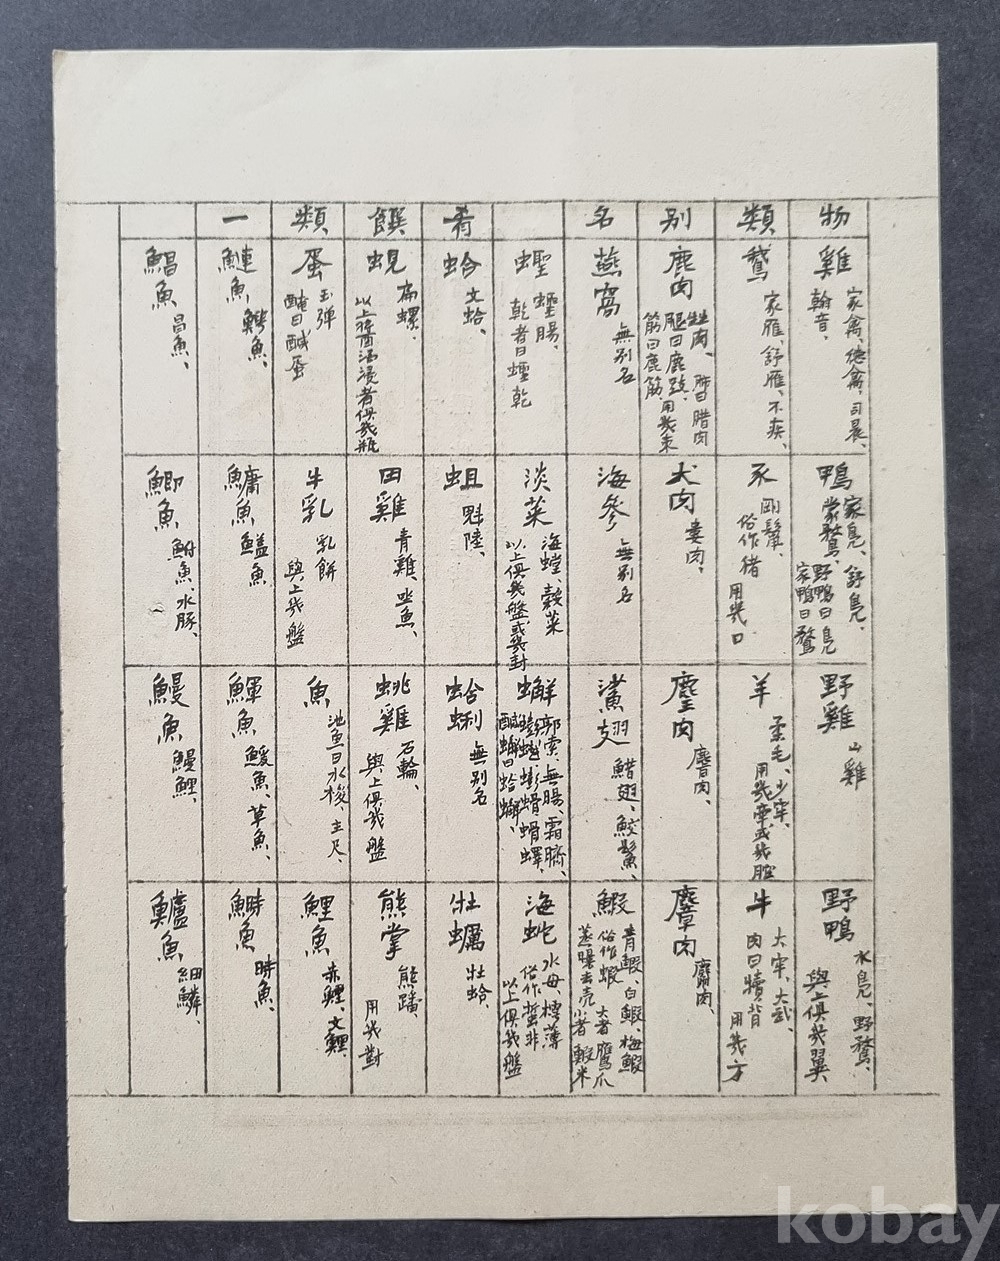 物類別名 肴饌類一
雞 家禽、德禽、司晨、
翰音、
鴨 家鳧、舒鳧、
家鶩、野鴨曰鳧
家鴨曰鶩
野雞 山雞
野鴨 水鳧、野鶩、
與上俱幾翼
鵞 家雁、舒雁、不疾、
豕 剛鬣、
俗作猪
用幾口
羊 柔毛、少牢、
用幾牽或幾腔
牛 大牢、大武、
肉曰犢背
用幾方
鹿肉 肺曰腊肉
腿曰鹿跂、
筋曰鹿筋、用幾束
犬肉 婁肉、
麞肉
麞肉
燕窩 無別名
海參 無別名
鯊翅 鯌翅、鮫鬣、
鰕 青鰕、白鰕、梅鰕
俗作蝦 大者鷹爪
蒸曝去売小者鰕米
蟶 蟶腸、
乾者曰蟶乾
淡菜 海蜌、殼菜
以上俱幾盤或幾封
蟹 郭索、無腸、霜臍、
海蛇 水母、樗薄
俗作蜇非
以上俱幾盤
蛤 文蛤、
蛆 魁陸、
蛤蜊 無別名
牡蠣 牡蛤、
蜆 扁螺、
以上將酉酒浸者俱幾瓶
田雞 青雞、坐魚、
蛾雞 石輪、
與上俱幾盤
熊掌 熊蹯、
用幾對
蛋 玉弹
醃曰鹹蛋
牛乳 乳餅
與上幾盤
魚 池魚曰水梭、主尺、
鯉魚 赤鯉、文鯉、
鰱魚 鱮魚、
鱅魚 鰪魚
鯶魚 鰀魚、草魚、
鰣魚 時魚、
鯧魚 昌魚、
鯽魚 鮒魚、水豚、
鰻魚 鰻鯉、
鱸魚 細鱗、
kobay